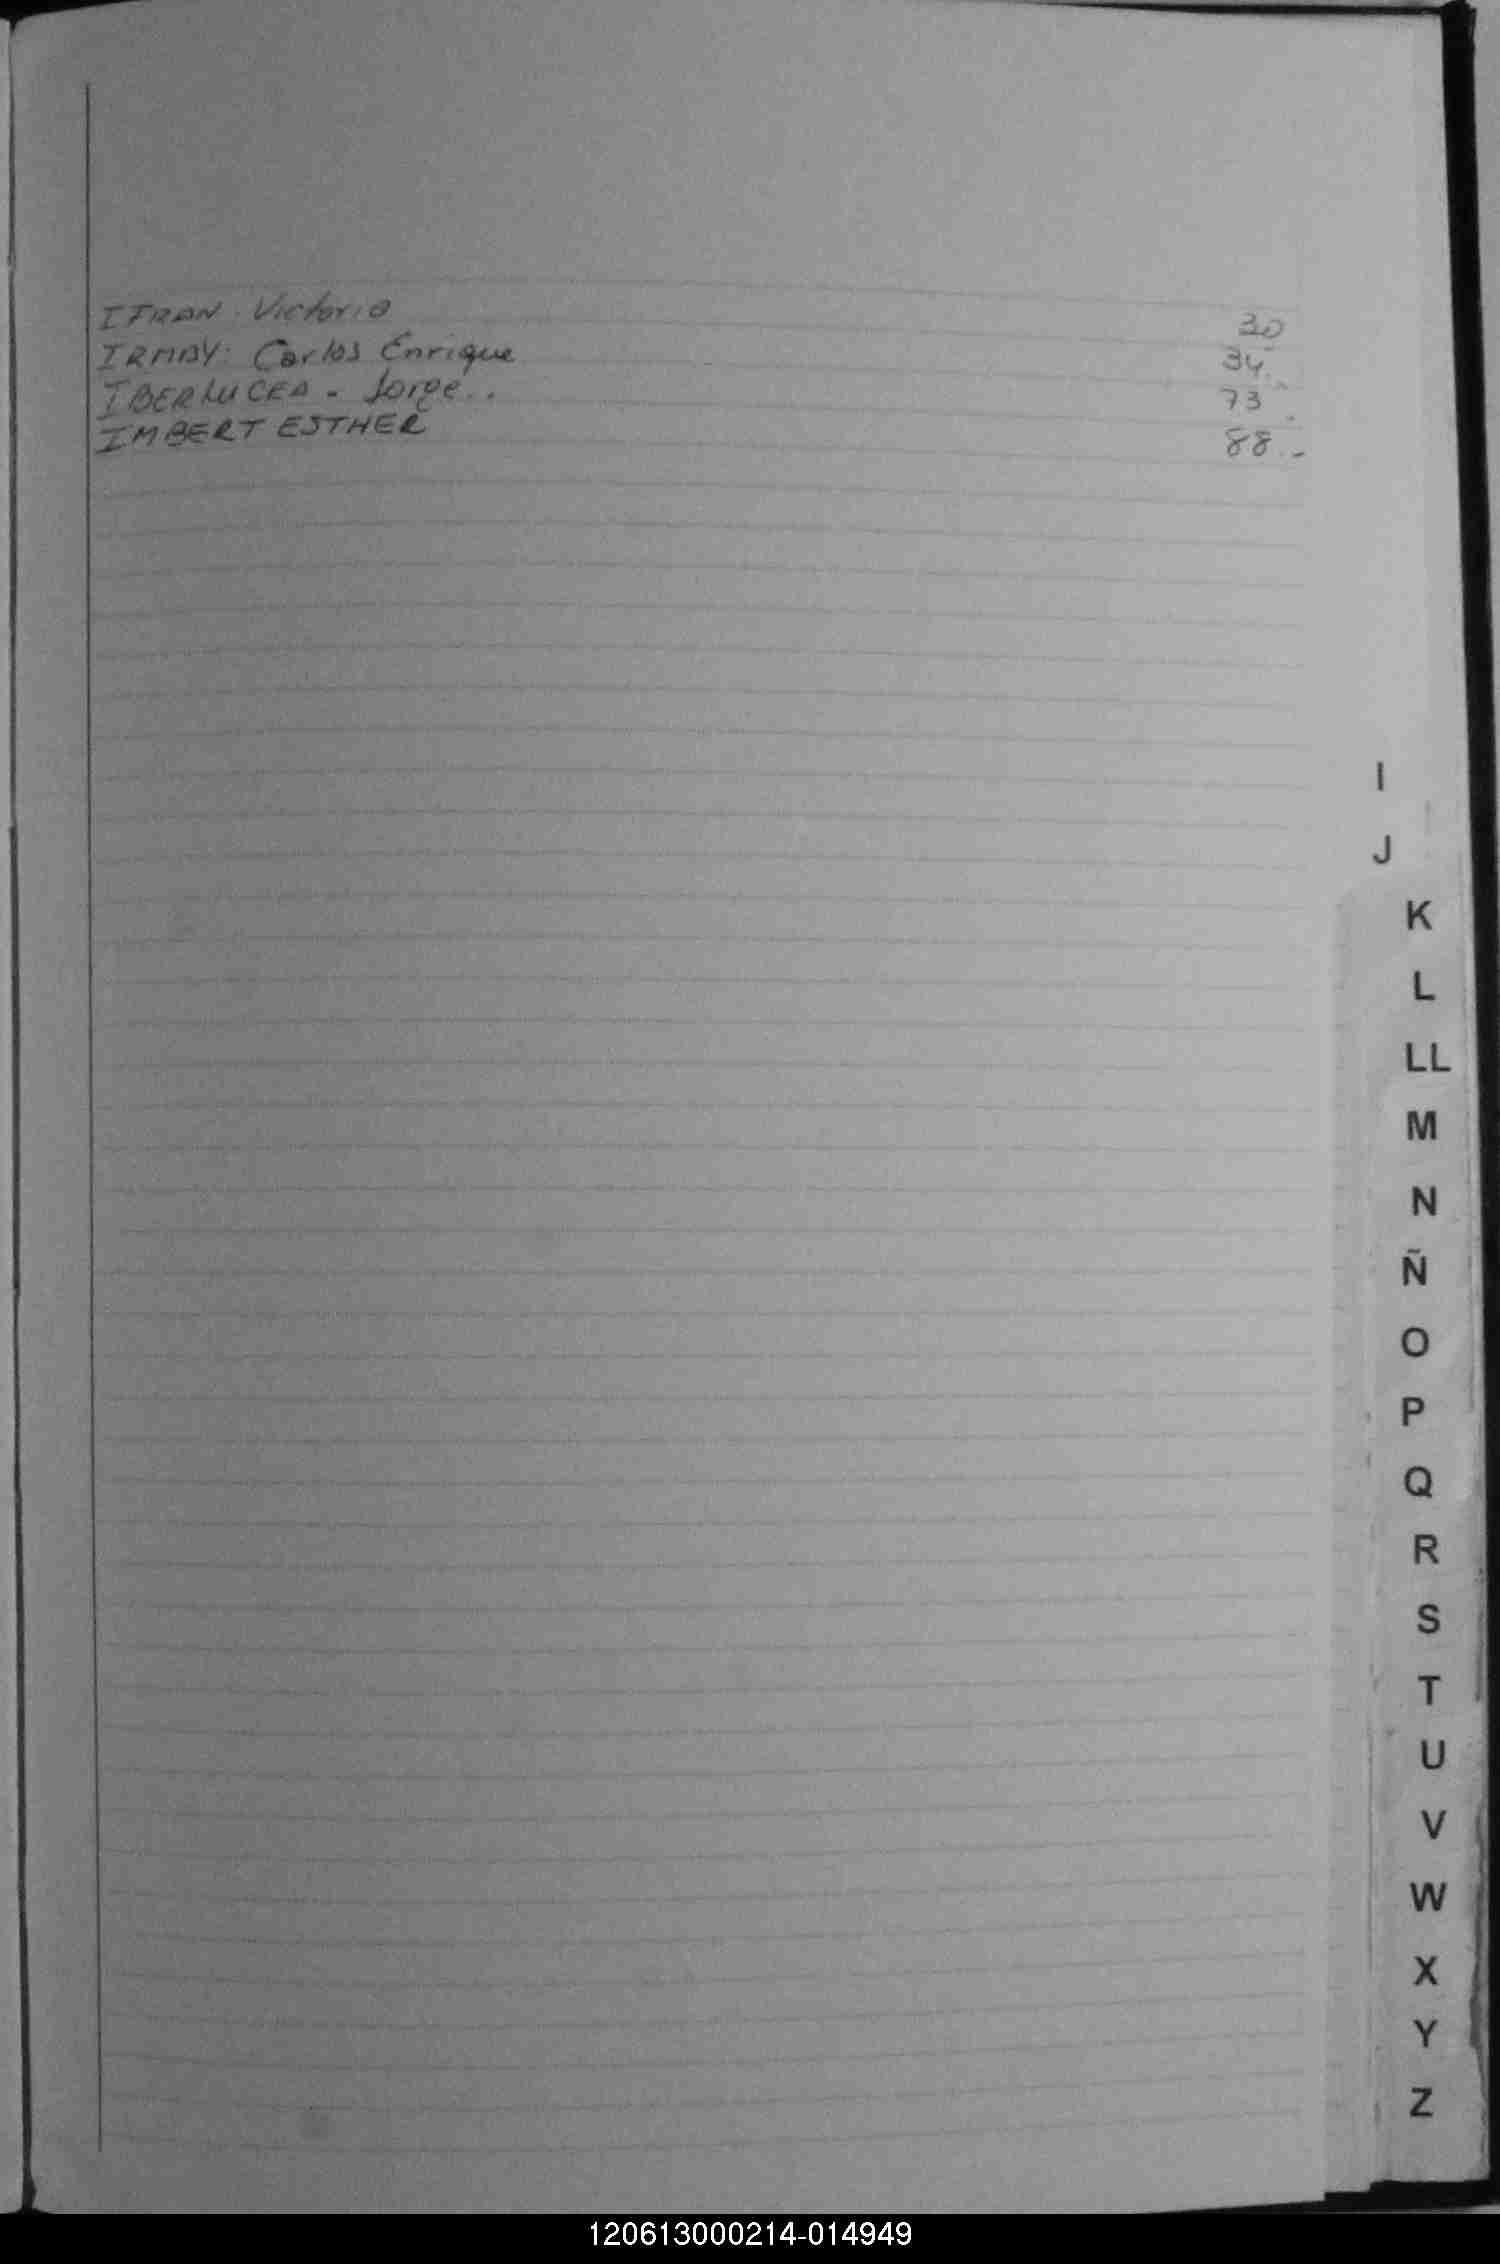 IFRAN. Victoria 30
IRMAY: Carlos Enrique 34
IBERLUCEA - Jorge.. 73
IMBERT ESTHER 88.-
I
J
K
L
LL
M
N
Ñ
O
P
Q
R
S
T
U
V
W
X
Y
Z
120613000214-014949